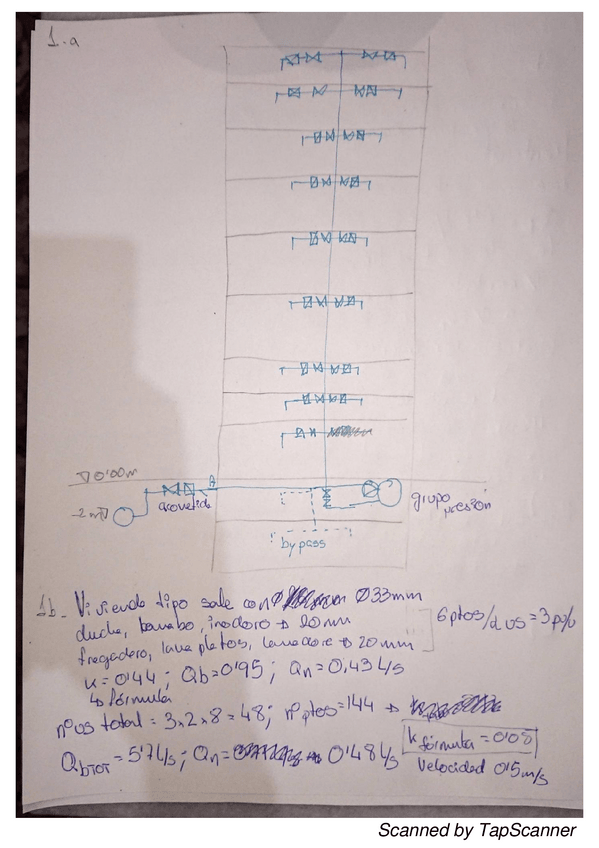 1.a
▽0'00m
-2m▽
acometida
grupo
presión
by pass
1b. Vivienda tipo sale con Ø33mm
ducha, lavabo, inodoro → 20mm
fregadero, lavaplatos, lavadora → 20mm
6 ptos/2 us = 3 p/u
k = 0'44 ; Qb = 0'95 ; Qn = 0,43 l/s
↳ fórmula
nº us total = 3x2x8 = 48; nº ptos = 144 →
k fórmula = 0'08
QbTOT = 5'7 l/s ; Qn = 0'48 l/s
velocidad 0'5 m/s
Scanned by TapScanner